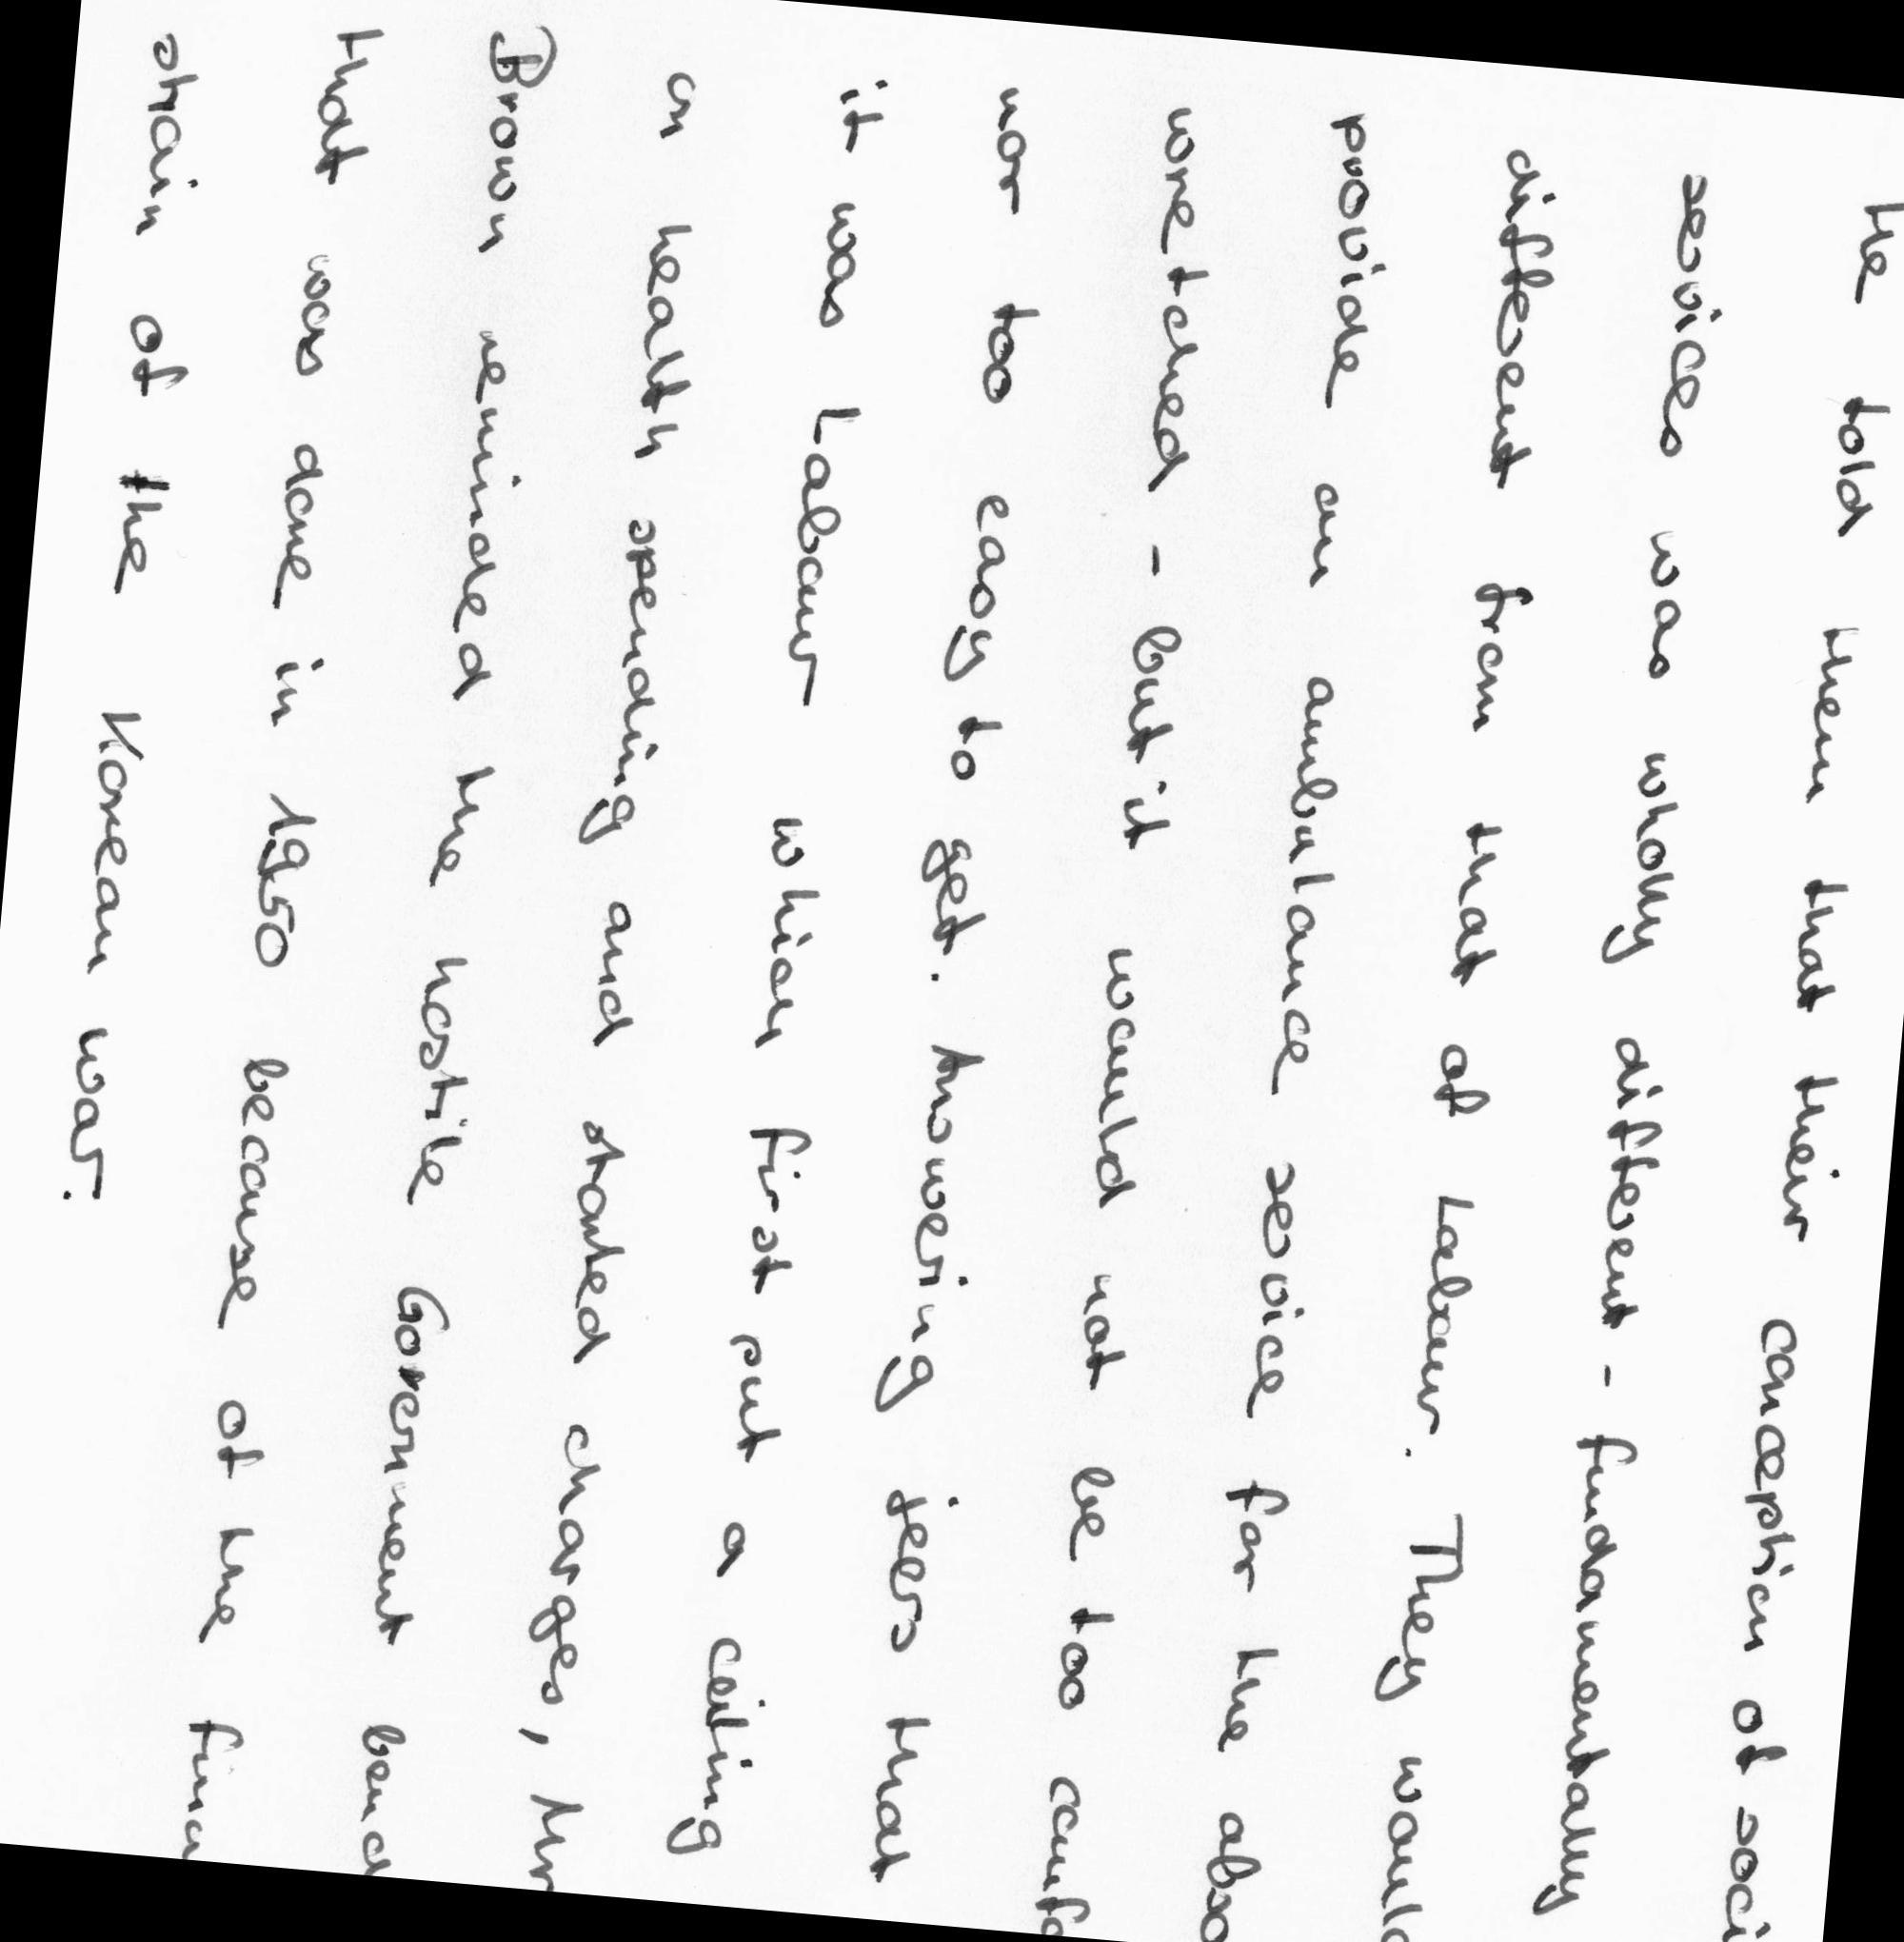 He told them that their conception of soci
services was wholly different - fundamentally
different from that of Labour. They would
provide an ambulance service for the abso
wretched - but it would not be too comfo
nor too easy to get. Answering jeers that
it was Labour which first put a ceiling
on health spending and started charges, Mr
Brown reminded the hostile Government benc
that was done in 1950 because of the finan
strain of the Korean war.